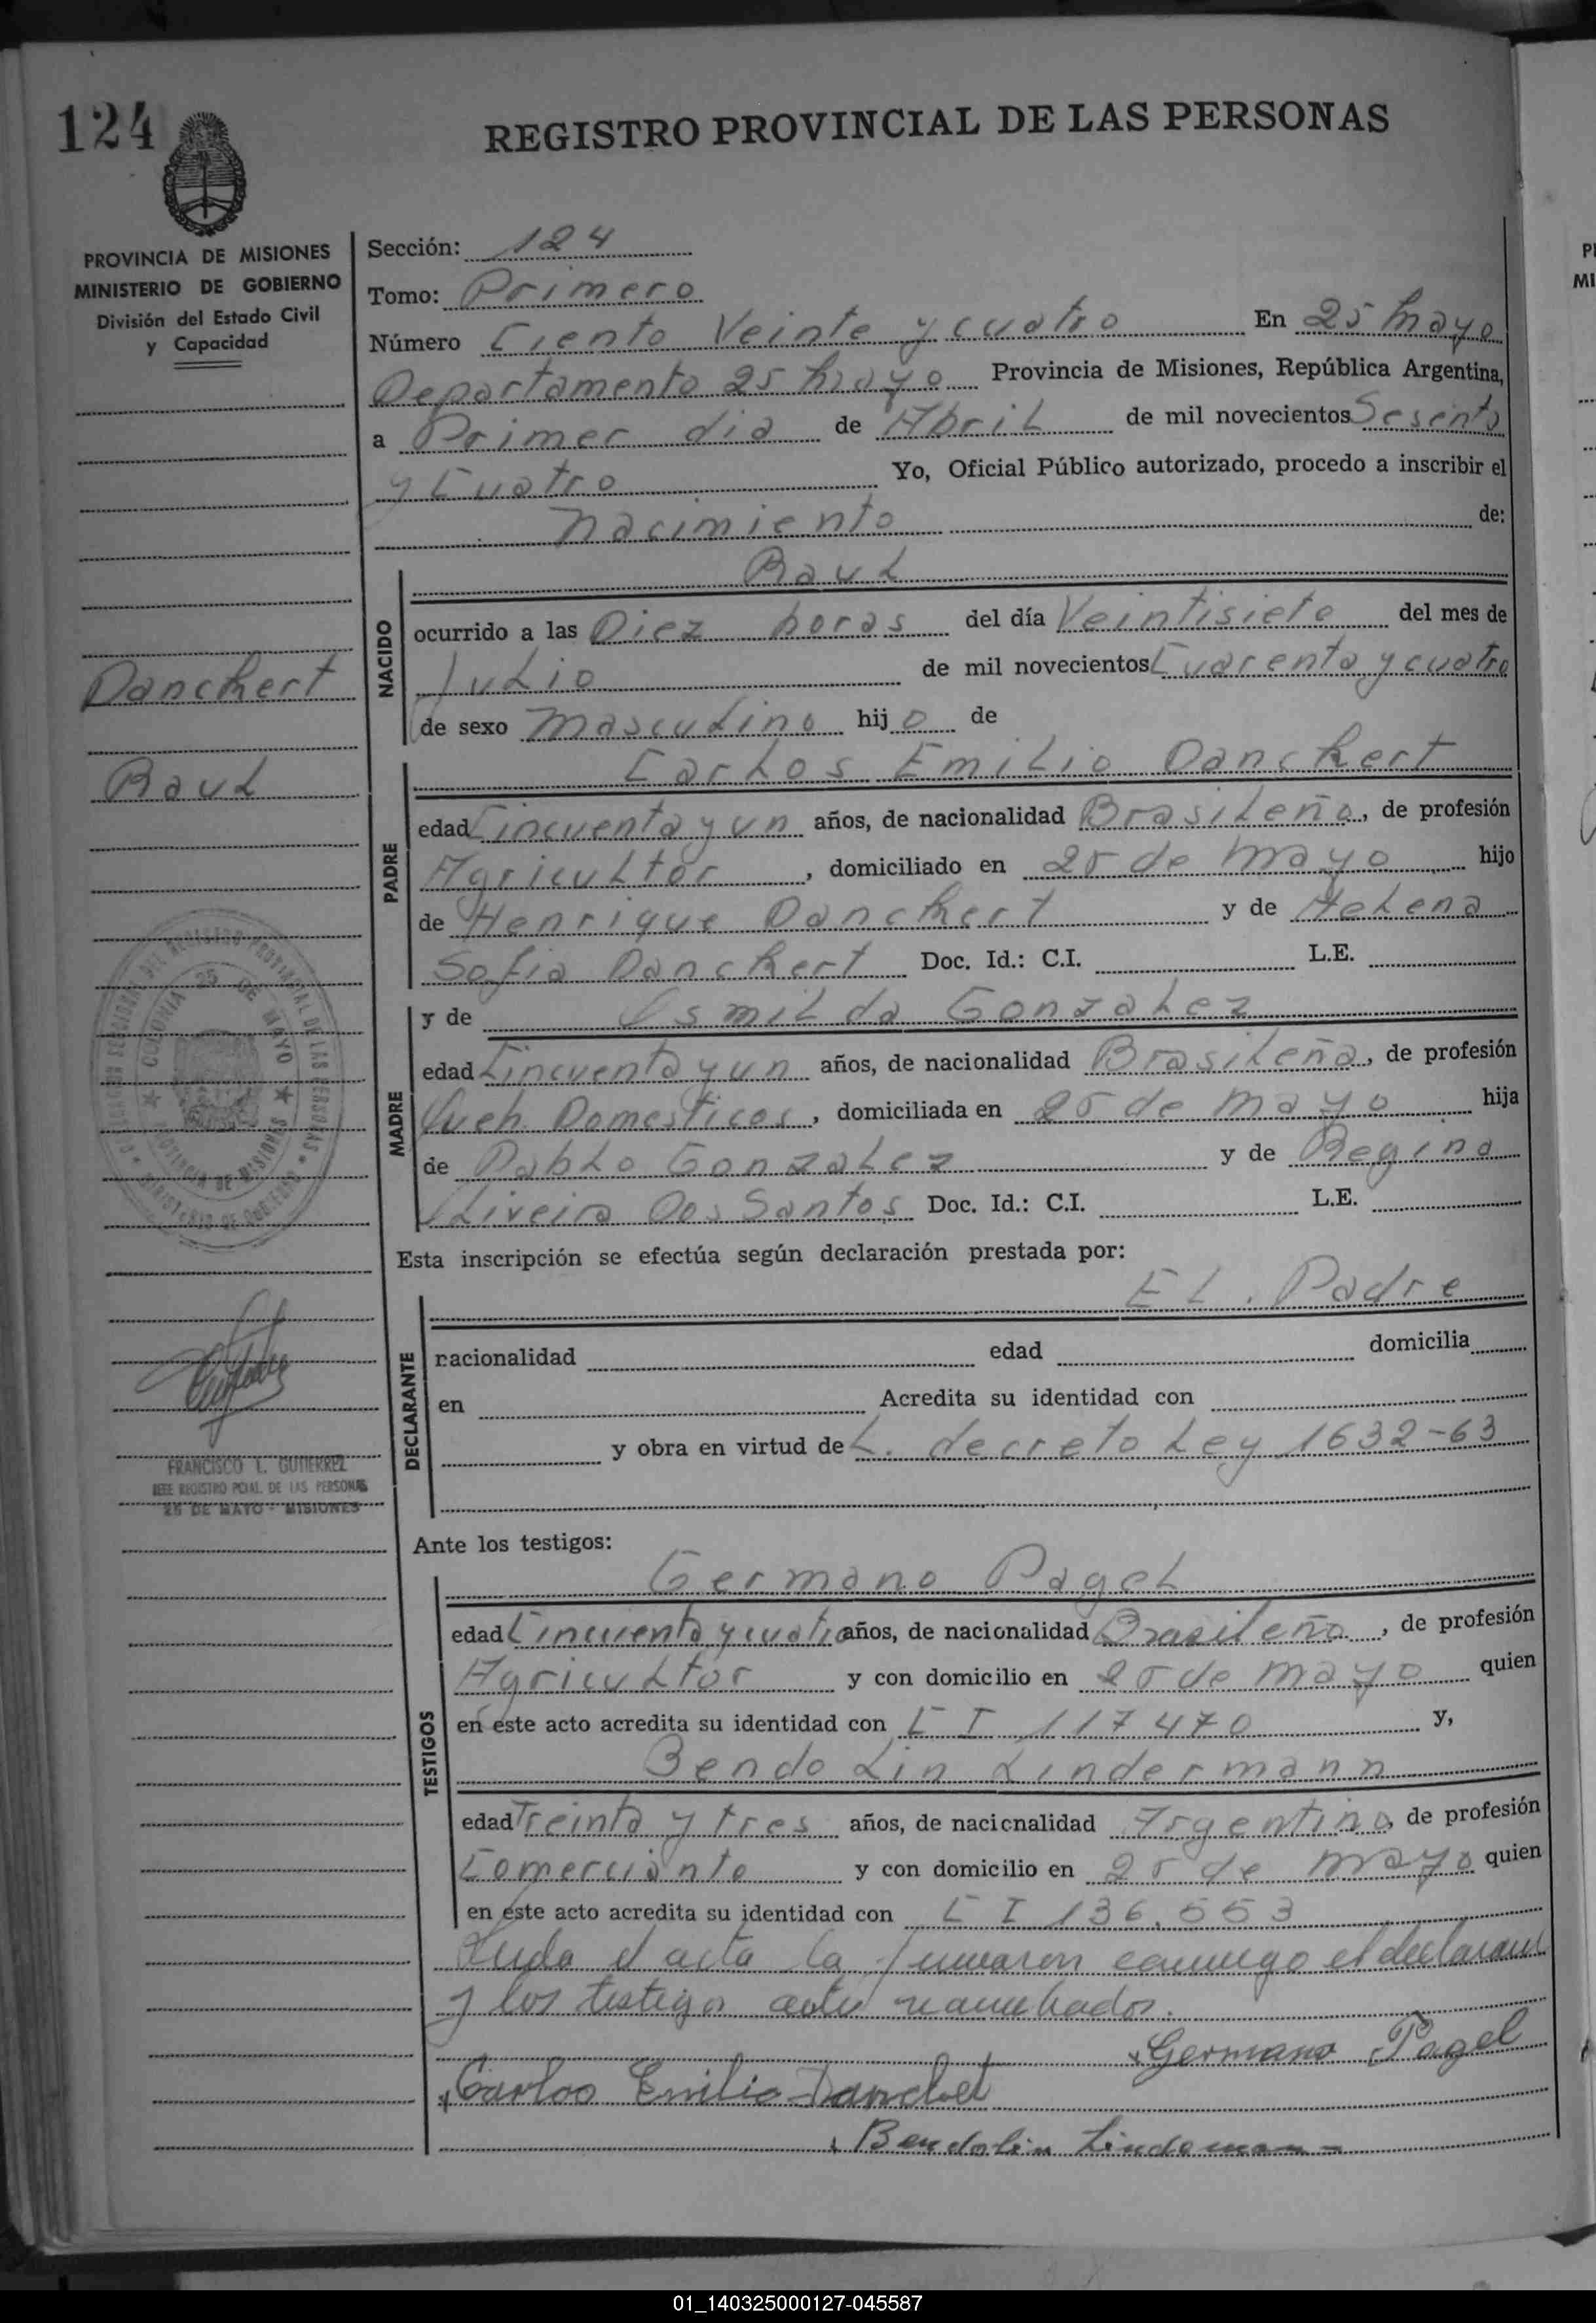 124
REGISTRO PROVINCIAL DE LAS PERSONAS
PROVINCIA DE MISIONES
MINISTERIO DE GOBIERNO
División del Estado Civil
y Capacidad
Danckert
Raul
FRANCISCO L. GUTIERREZ
JEFE REGISTRO PCIAL. DE LAS PERSONAS
25 DE MAYO - MISIONES
Sección: 124
Tomo: Primero
Número Ciento Veinte y cuatro En 25 Mayo
Departamento 25 Mayo Provincia de Misiones, República Argentina,
a Primer dia de Abril de mil novecientos Sesenta
y Cuatro Yo, Oficial Público autorizado, procedo a inscribir el
nacimiento de:
NACIDO
Raul
ocurrido a las Diez horas del día Veintisiete del mes de
Julio de mil novecientos Cuarenta y cuatro
de sexo masculino hijo de
PADRE
Carlos Emilio Danckert
edad Cincuenta y un años, de nacionalidad Brasileña, de profesión
Agricultor, domiciliado en 25 de mayo hijo
de Henrique Danckert y de Helena
Sofia Danckert Doc. Id.: C.I. L.E.
MADRE
y de Osmilda Gonzalez
edad Cincuenta y un años, de nacionalidad Brasileña, de profesión
Queh. Domesticos, domiciliada en 25 de mayo hija
de Pablo Gonzalez y de Regina
Oliveira Dos Santos Doc. Id.: C.I. L.E.
Esta inscripción se efectúa según declaración prestada por:
DECLARANTE
El. Padre
nacionalidad edad domicilia
en Acredita su identidad con
y obra en virtud de L. decreto Ley 1632-63
Ante los testigos:
TESTIGOS
Germano Pagel
edad Cincuenta y cuatro años, de nacionalidad Brasileña, de profesión
Agricultor y con domicilio en 25 de mayo quien
en este acto acredita su identidad con C I 117470 y,
Bendolin Lindermann
edad Treinta y tres años, de nacionalidad Argentina, de profesión
Comerciante y con domicilio en 25 de mayo quien
en este acto acredita su identidad con C I 136.553
Leida el acta la firmaron conmigo el declarante
y los testigos antes nombrados.
Germano Pagel
Carlos Emilio Danckert
Bendolin Lindemann
01_140325000127-045587